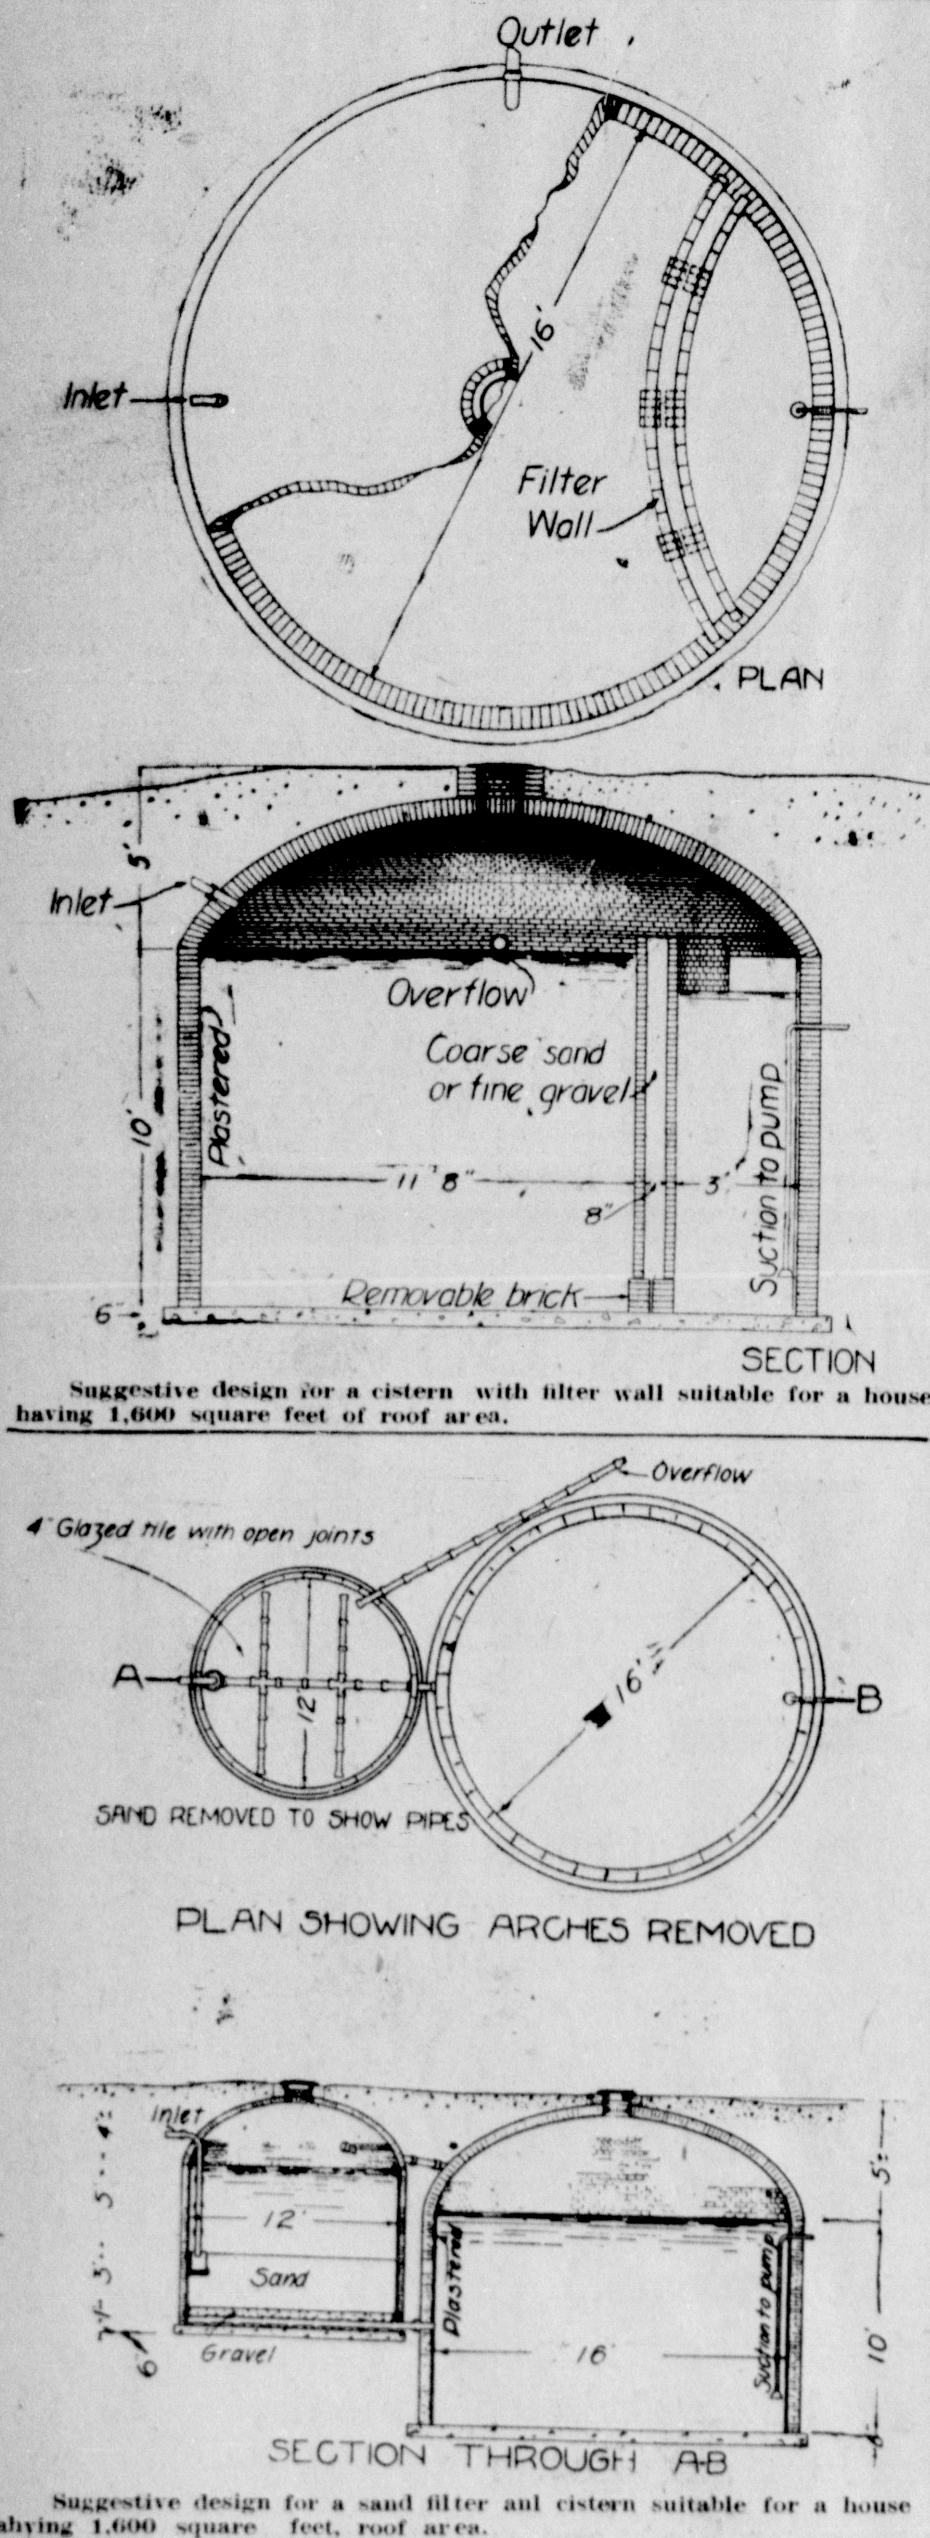 Outlet
16'
Inlet
Filter
Wall
PLAN
5'
Inlet
Overflow
Coarse sand
or fine gravel
Plastered
10'
11' 8"
3'
8"
Suction to pump
Removable brick
6"
SECTION
Suggestive design for a cistern with filter wall suitable for a house
having 1,600 square feet of roof area.
Overflow
4" Glazed tile with open joints
A
12'
16'
B
SAND REMOVED TO SHOW PIPES
PLAN SHOWING ARCHES REMOVED
Inlet
4'
5'
12'
5'
3'
Sand
Plastered
Suction to pump
Gravel
6"
16'
10'
SECTION THROUGH A-B
Suggestive design for a sand filter anl cistern suitable for a house
ahving 1,600 square feet, roof area.